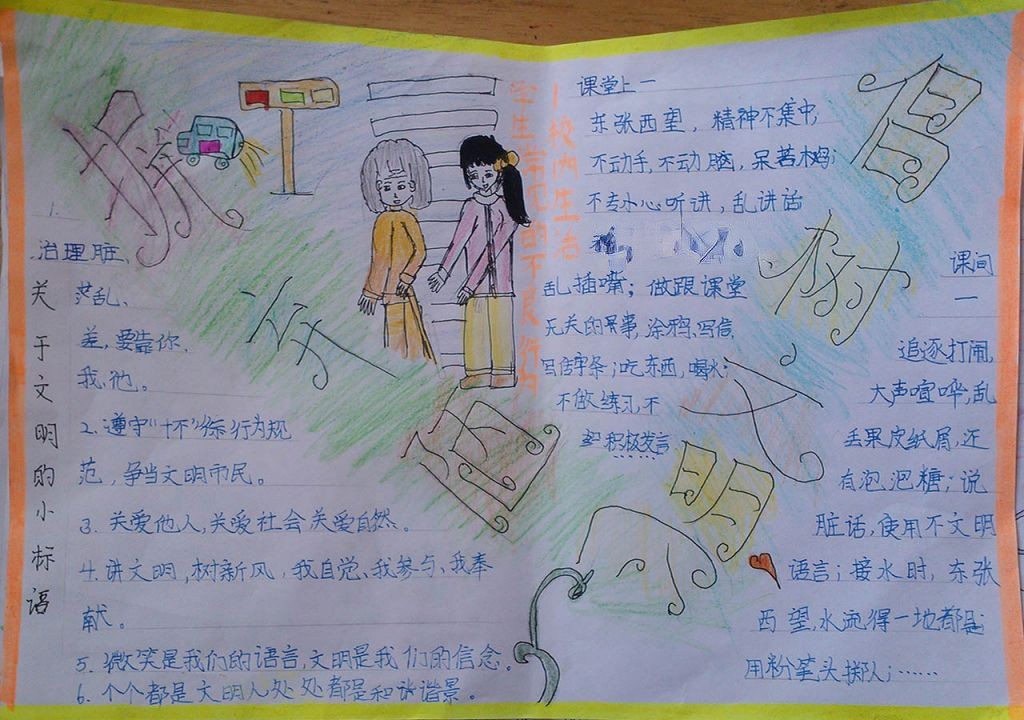 行
树
文
明
风
校内生活
学生常见的不良行为
关于文明的小标语
1.
治理脏、
茫乱、
差,要靠你、
我、他。
2.遵守"十不"行为规
范,争当文明市民。
3.关爱他人,关爱社会关爱自然。
4.讲文明,树新风,我自觉、我参与、我奉
献。
5.微笑是我们的语言,文明是我们的信念。
6.个个都是文明人处处都是和谐景。
课堂上一
东张西望,精神不集中,
不动手,不动脑,呆若木鸡;
不专心听讲,乱讲话
乱插嘴;做跟课堂
无关的事,涂鸦、写信、
写信字条;吃东西,喝水;
不做练习,不
积极发言
课间
一
追逐打闹,
大声喧哗,乱
丢果皮纸屑,还
有泡泡糖;说
脏话,使用不文明
语言;接水时,东张
西望,水流得一地都是;
用粉笔头掷人;……